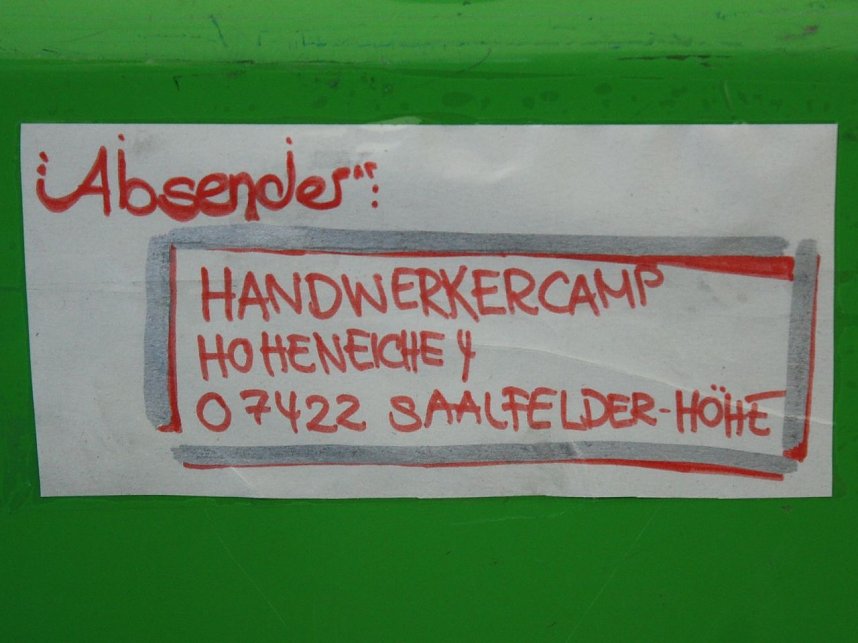 Absender:
HANDWERKERCAMP
HOHENEICHE 4
07422 SAALFELDER-HÖHE